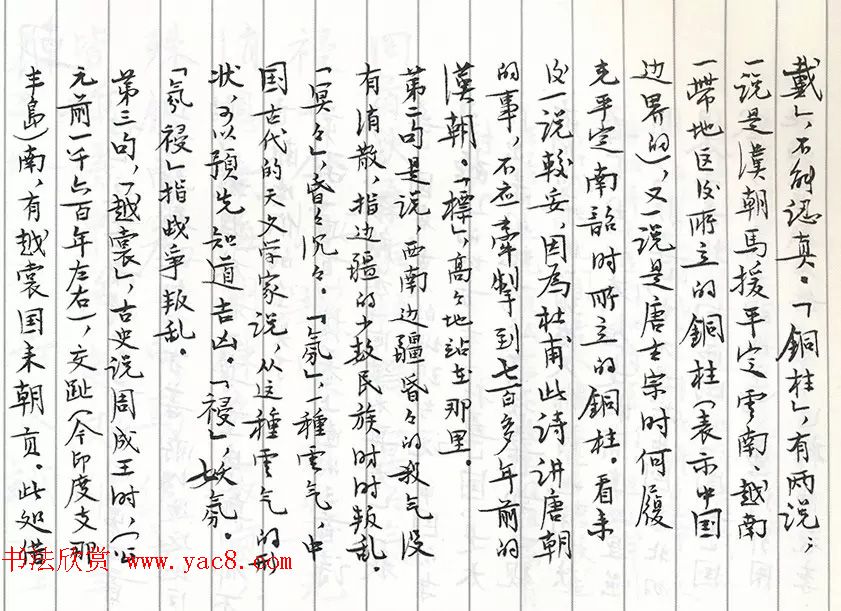 戴」，不能認真。「銅柱」，有兩説；
一説是漢朝馬援平定雲南、越南
一帶地区后所立的銅柱（表示中国
边界的），又一説是唐玄宗时何履
光平定南詔时所立的銅柱。看来
后一説較妥，因為杜甫此诗讲唐朝
的事，不应牽掣到七百多年前的
漢朝。「標」，高々地站在那里。
第二句是说，西南边疆昏々的殺气没
有消散，指边疆的少数民族时时叛乱。
「冥々」，昏々沉々。「氛」，一種雲气，中
国古代的天文学家说，从这種雲气的形
状，可以預先知道吉凶。「祲」，妖氛。
「氛祲」指战争叛乱。
第三句，「越裳」，古史说周成王时，（公
元前一千六百年左右），交趾（今印度支那
半島）南，有越裳国来朝贡。此处借
书法欣赏 www.yac8.com